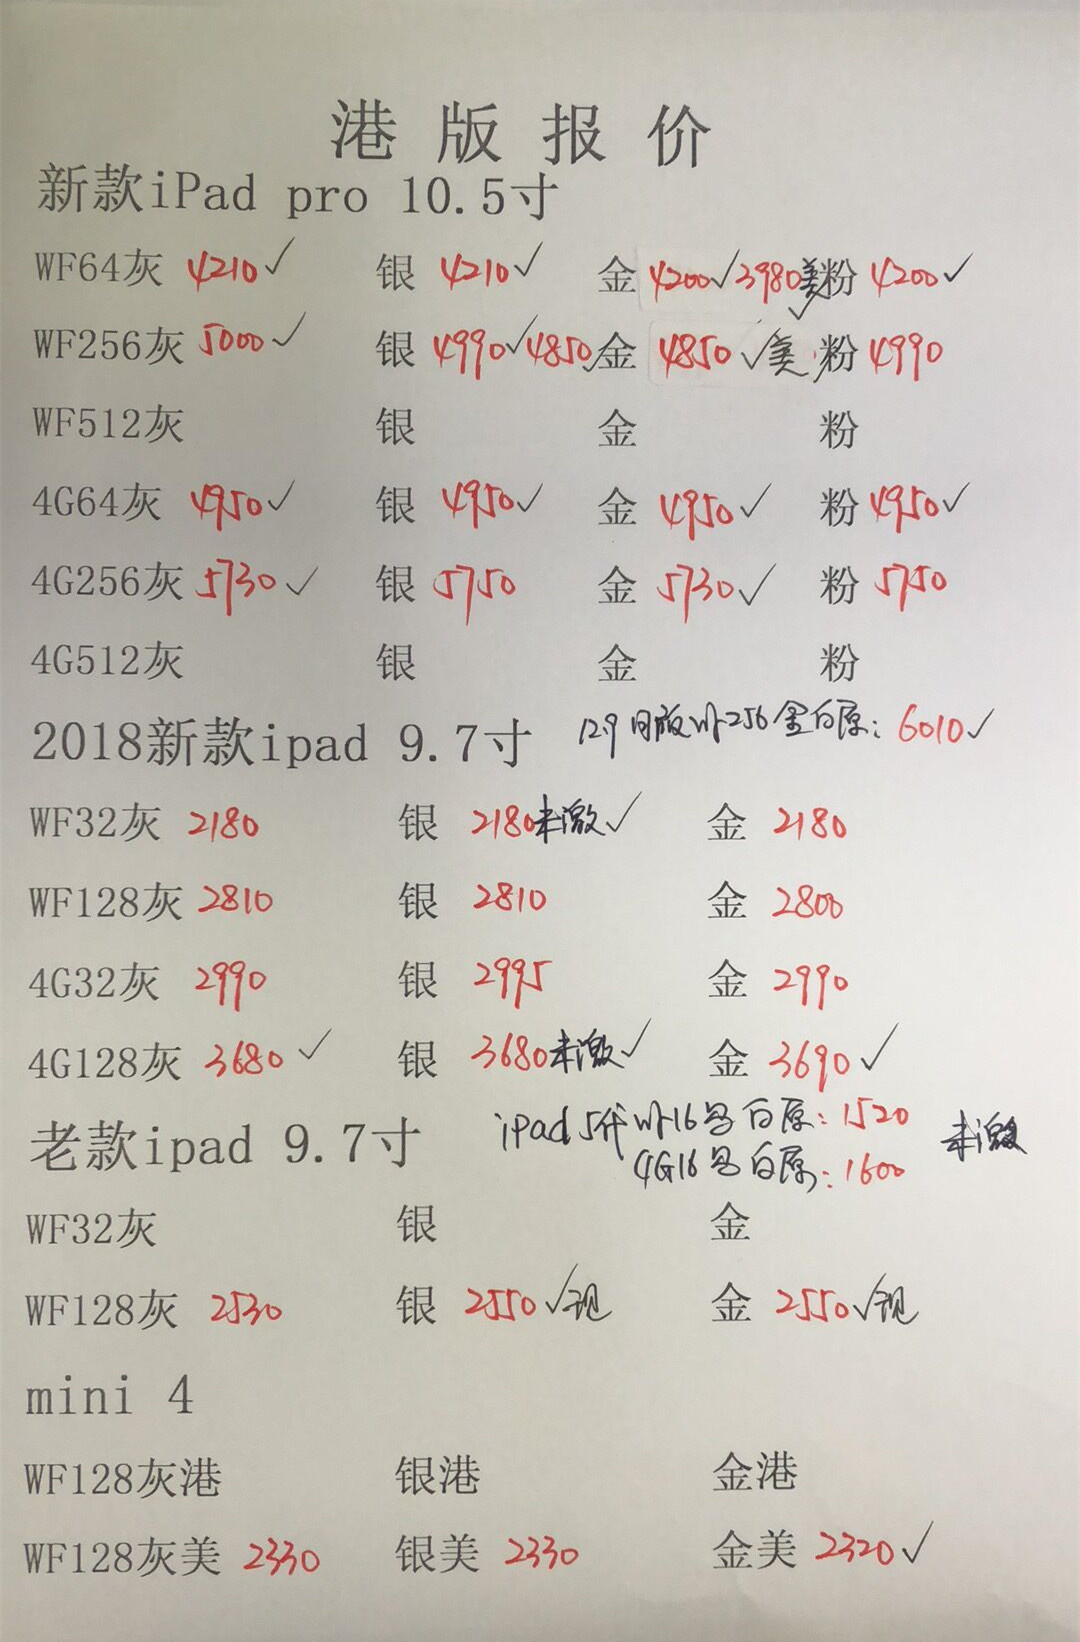 港版报价
新款iPad pro 10.5寸
WF64灰 4210✓ 银 4210✓ 金 4200✓3980美✓ 粉 4200✓
WF256灰 5000✓ 银 4990✓4850✓ 金 4850✓美 粉 4990
WF512灰 银 金 粉
4G64灰 4950✓ 银 4950✓ 金 4950✓ 粉 4950✓
4G256灰 5730✓ 银 5750 金 5730✓ 粉 5750
4G512灰 银 金 粉
2018新款ipad 9.7寸 12.9 日版 WF256 金 白原: 6010✓
WF32灰 2180 银 2180未激✓ 金 2180
WF128灰 2810 银 2810 金 2800
4G32灰 2990 银 2995 金 2990
4G128灰 3680✓ 银 3680未激✓ 金 3690✓
老款ipad 9.7寸 ipad 5代 WF16 白原: 1520 未激
4G16 白原: 1600
WF32灰 银 金
WF128灰 2530 银 2550✓现 金 2550✓现
mini 4
WF128灰港 银港 金港
WF128灰美 2330 银美 2330 金美 2320✓